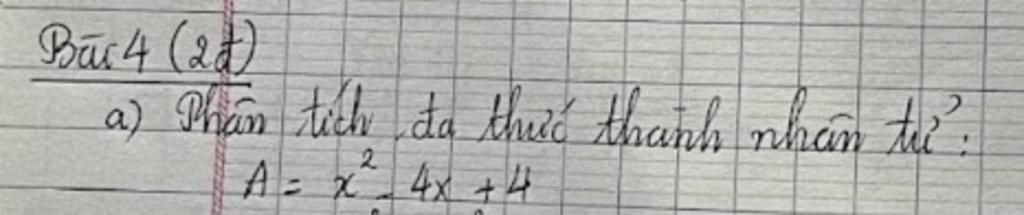 Bài 4 (2đ)
a) Phân tích đa thức thành nhân tử :
A = x² - 4x + 4